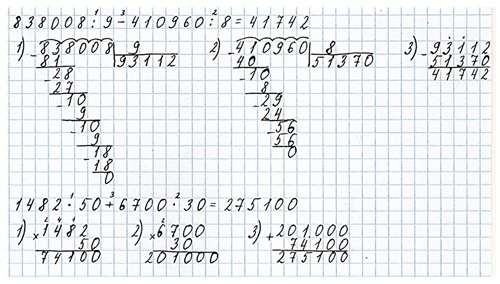 838008 : 9 - 410960 : 8 = 41742
1) - 838008 | 9
81 | 93112
- 28
27
- 10
9
- 10
9
- 18
18
0
2) - 410960 | 8
40 | 51370
- 10
8
- 29
24
- 56
56
0
3) - 93112
51370
41742
1482 · 50 + 6700 · 30 = 275100
1) × 1482
50
74100
2) × 6700
30
201000
3) + 201.000
74100
275100